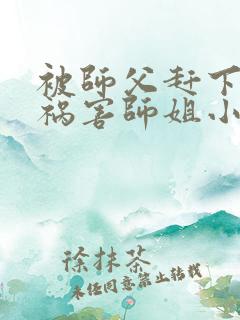 被師父赶下
祸害師姐小
徐抹茶
未经同意禁止转载